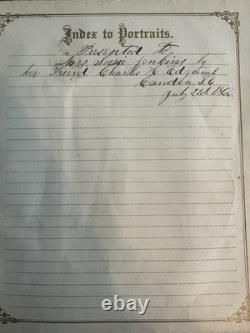 Index to Portraits.
Presented to
Mrs Susie Jenkins by
her Friend Charles H Edgcomb
Camden S.C.
July 23d